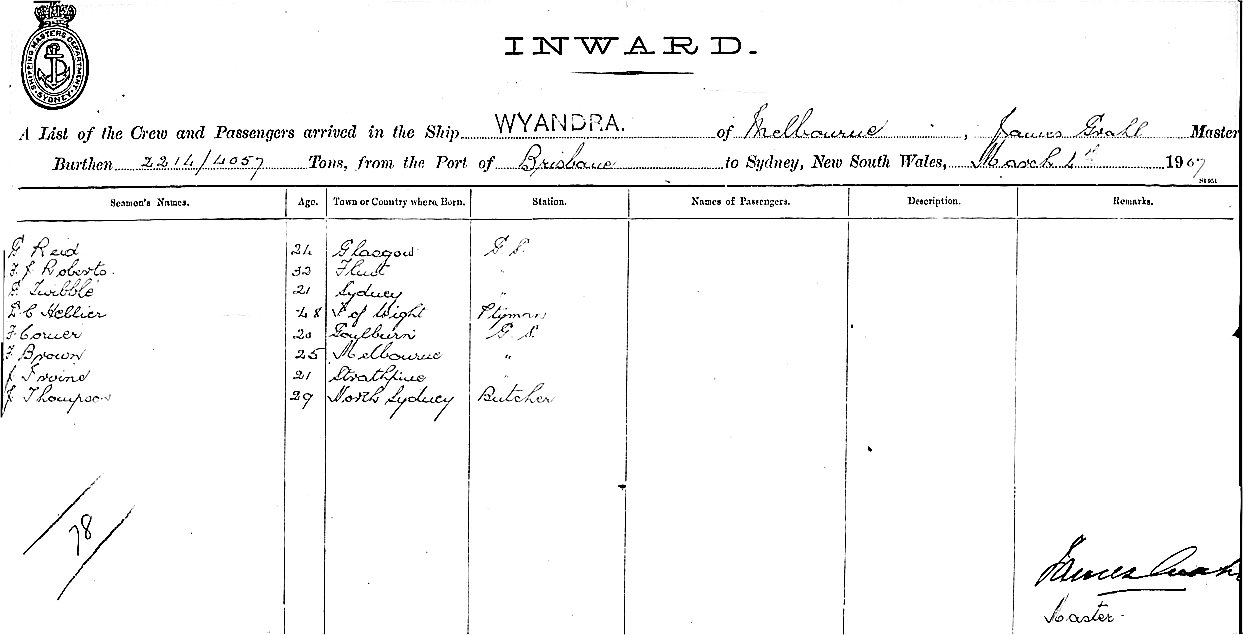 SHIPPING MASTERS DEPARTMENT SYDNEY
INWARD.
A List of the Crew and Passengers arrived in the Ship WYANDRA. of Melbourne, James Grahl Master
Burthen 2214/4057 Tons, from the Port of Brisbane to Sydney, New South Wales, March 1907
Seamen's Names. Age. Town or Country where Born. Station. Names of Passengers. Description. Remarks.
G Reid 24 Glasgow G. S.
F. J Roberts. 32 Flint "
Twibble 21 Sydney "
C Hellier 48 I of Wight
F Comer 20 Goulburn G. S.
F Brown 25 Melbourne "
J Irvine 21 Strathpine "
J Thompson 29 North Sydney Butcher
78
James Grahl
Master